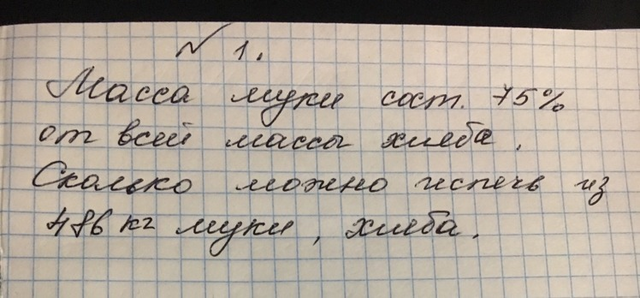 № 1.
Масса муки сост. 75%
от всей массы хлеба.
Сколько можно испечь из
486 кг муки, хлеба.